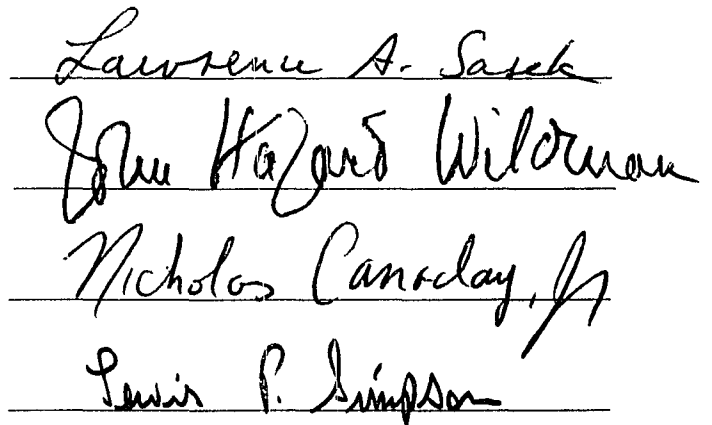 Lawrence A. Sasek
John Hazard Wildman
Nicholas Canaday, Jr
Lewis P. Simpson